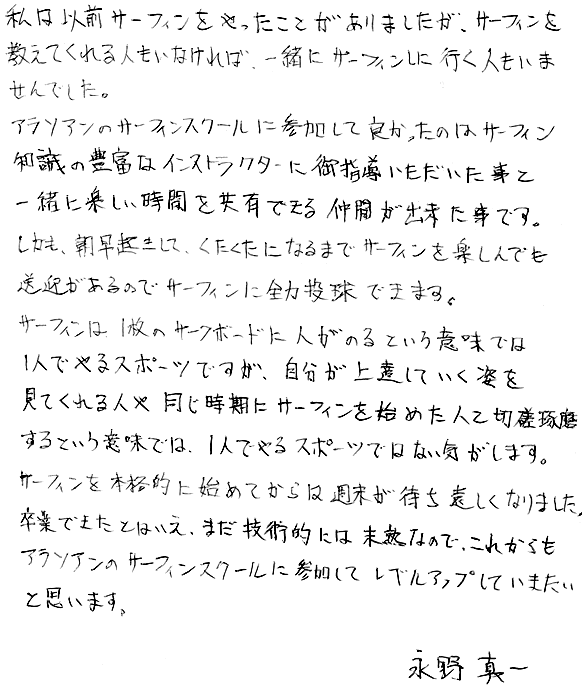 私は以前サーフィンをやったことがありましたが、サーフィンを
教えてくれる人もいなければ、一緒にサーフィンしに行く人もいま
せんでした。
アラソアンのサーフィンスクールに参加して良かったのはサーフィン
知識の豊富なインストラクターに御指導いただいた事と
一緒に楽しい時間を共有できる仲間が出来た事です。
しかも、朝早起きして、くたくたになるまでサーフィンを楽しんでも
送迎があるのでサーフィンに全力投球できます。
サーフィンは1枚のサーフボードに人がのるという意味では
1人でやるスポーツですが、自分が上達していく姿を
見てくれる人や同じ時期にサーフィンを始めた人と切磋琢磨
するという意味では、1人でやるスポーツではない気がします。
サーフィンを本格的に始めてからは週末が待ち遠しくなりました。
卒業できたとはいえ、まだ技術的には未熟なので、これからも
アラソアンのサーフィンスクールに参加してレベルアップしていきたい
と思います。
永野真一